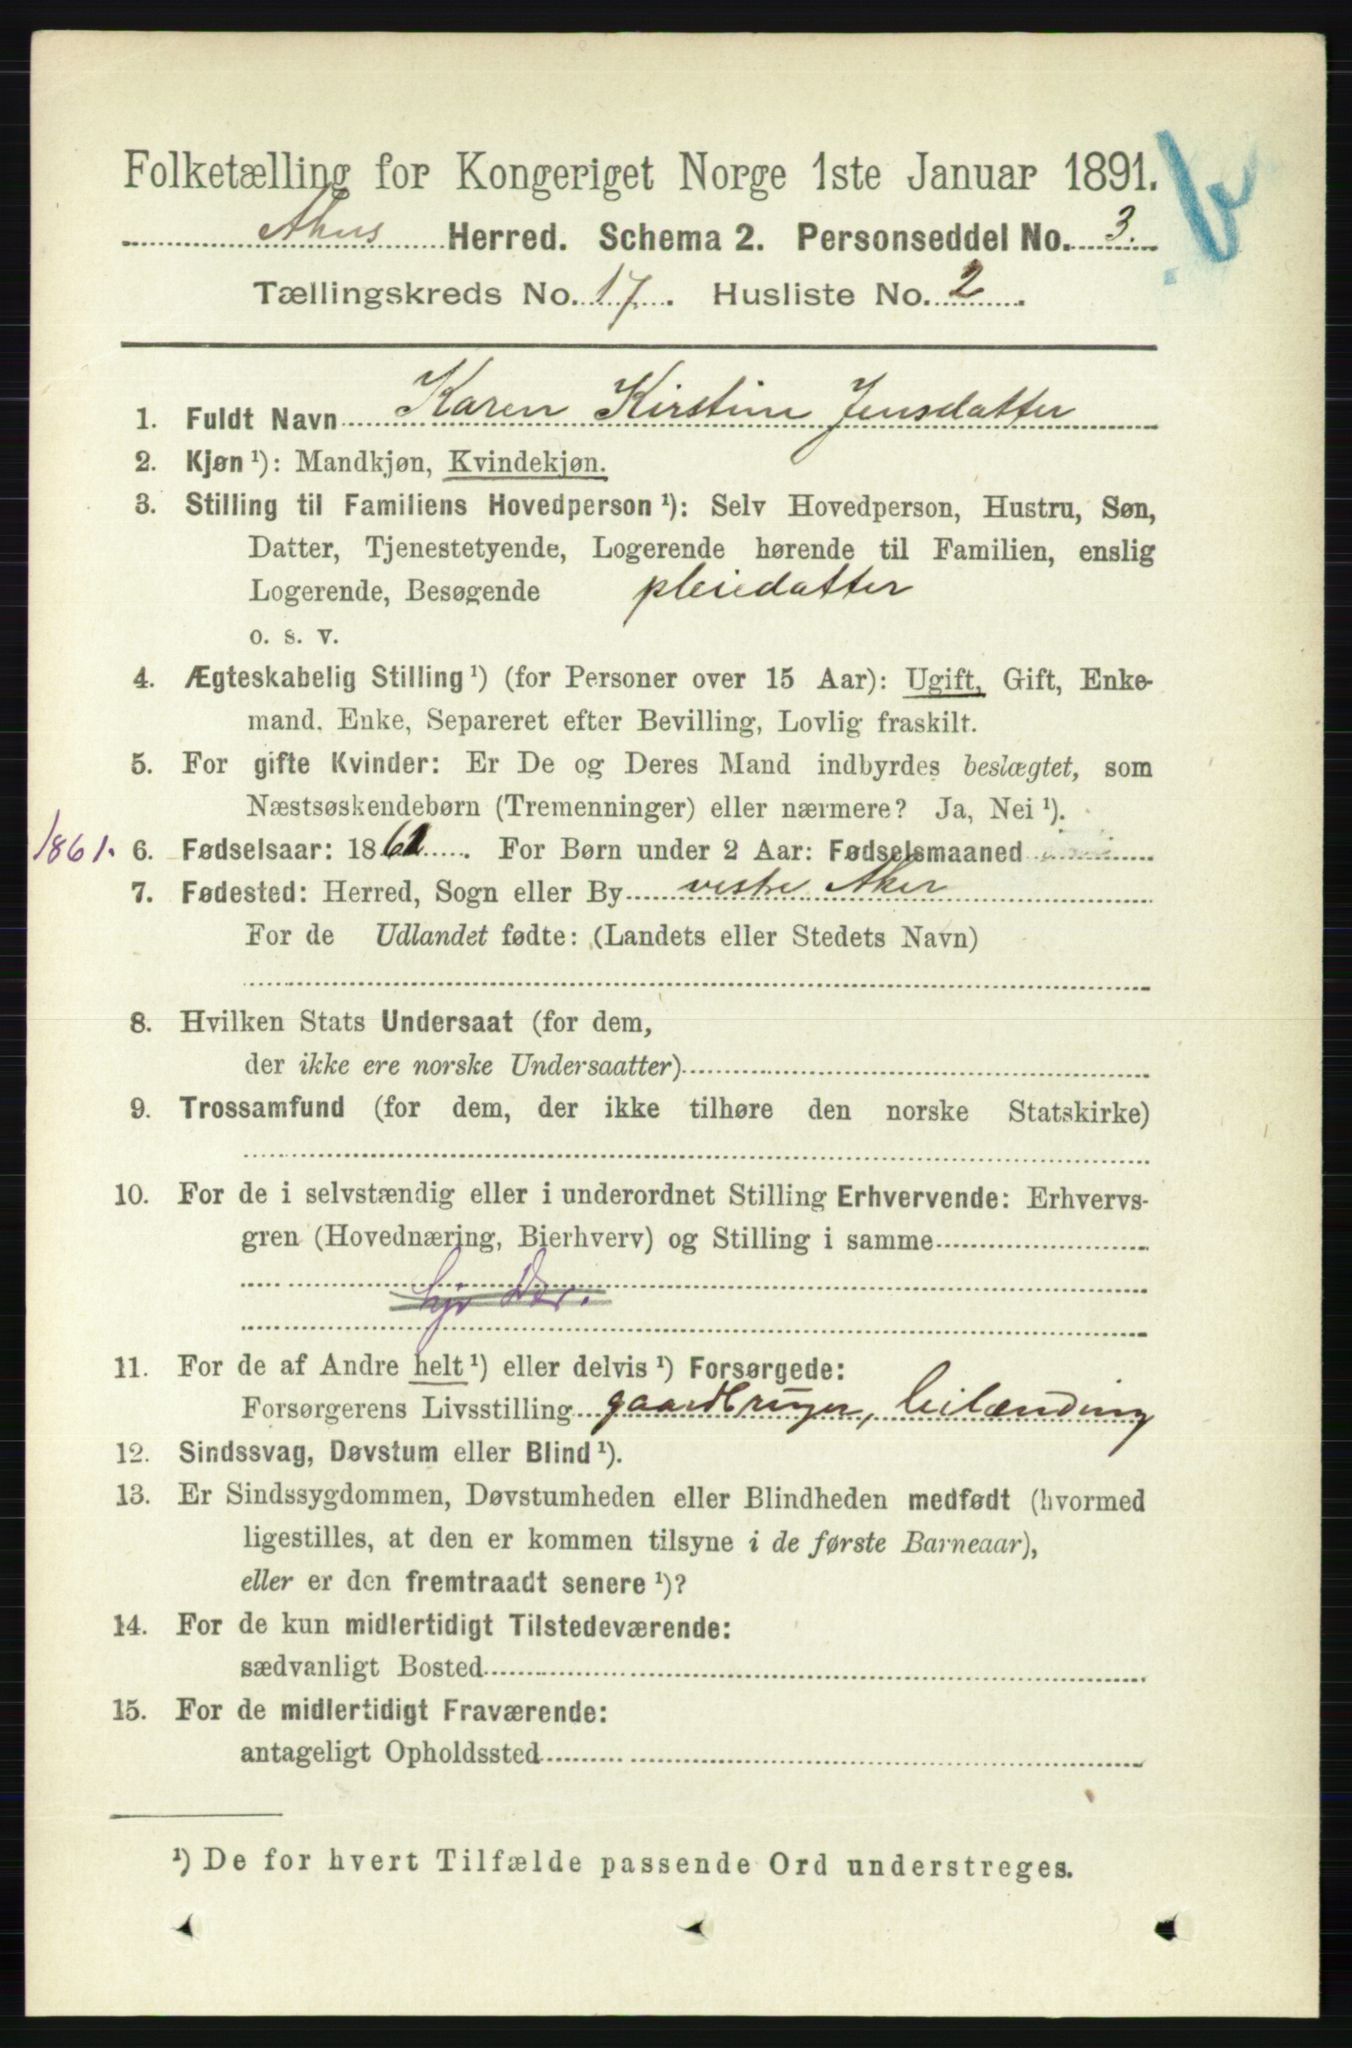 Folketælling for Kongeriget Norge 1ste Januar 1891.
Herred. Schema 2. Personseddel No. 3.
Tællingskreds No. 17. Husliste No. 2.
1. Fuldt Navn Karen Kirstine Jensdatter
2. Kjøn ¹): Mandkjøn, Kvindekjøn.
3. Stilling til Familiens Hovedperson ¹): Selv Hovedperson, Hustru, Søn,
Datter, Tjenestetyende, Logerende hørende til Familien, enslig
Logerende, Besøgende pleiedatter
o. s. v.
4. Ægteskabelig Stilling ¹) (for Personer over 15 Aar): Ugift, Gift, Enke-
mand, Enke, Separeret efter Bevilling, Lovlig fraskilt.
5. For gifte Kvinder: Er De og Deres Mand indbyrdes beslægtet, som
Næstsøskendebørn (Tremenninger) eller nærmere? Ja, Nei ¹).
1861. 6. Fødselsaar: 1861. For Børn under 2 Aar: Fødselsmaaned
7. Fødested: Herred, Sogn eller By vestre Aker
For de Udlandet fødte: (Landets eller Stedets Navn)
8. Hvilken Stats Undersaat (for dem,
der ikke ere norske Undersaatter)
9. Trossamfund (for dem, der ikke tilhøre den norske Statskirke)
10. For de i selvstændig eller i underordnet Stilling Erhvervende: Erhvervs-
gren (Hovednæring, Bierhverv) og Stilling i samme
11. For de af Andre helt ¹) eller delvis ¹) Forsørgede:
Forsørgerens Livsstilling gaardbruger, leilænding
12. Sindssvag, Døvstum eller Blind ¹).
13. Er Sindssygdommen, Døvstumheden eller Blindheden medfødt (hvormed
ligestilles, at den er kommen tilsyne i de første Barneaar),
eller er den fremtraadt senere ¹)?
14. For de kun midlertidigt Tilstedeværende:
sædvanligt Bosted
15. For de midlertidigt Fraværende:
antageligt Opholdssted
¹) De for hvert Tilfælde passende Ord understreges.